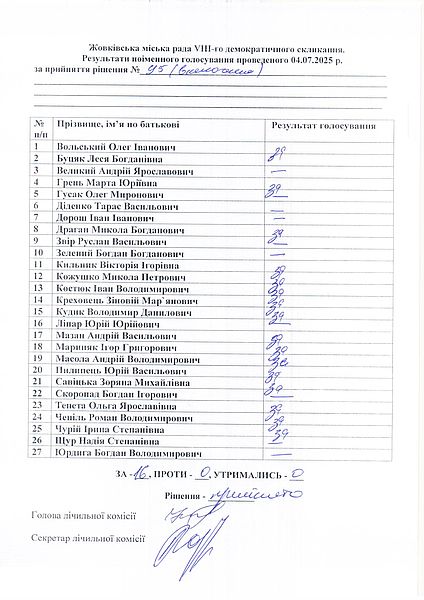 Жовківська міська рада VIII-го демократичного скликання.
Результати поіменного голосування проведеного 04.07.2025 р.
за прийняття рішення № 95 (включення)
№ п/п Прізвище, ім’я по батькові Результат голосування
1 Вольський Олег Іванович
2 Буцяк Леся Богданівна За
3 Великий Андрій Ярославович —
4 Грень Марта Юріївна
5 Гусак Олег Миронович За
6 Діденко Тарас Васильович —
7 Дорош Іван Іванович —
8 Драган Микола Богданович
9 Звір Руслан Васильович За
10 Зелений Богдан Богданович —
11 Кильник Вікторія Ігорівна
12 Кожушко Микола Петрович За
13 Костюк Іван Володимирович За
14 Креховець Зіновій Мар`янович За
15 Кудик Володимир Данилович За
16 Лінар Юрій Юрійович За
17 Мазан Андрій Васильович
18 Мариняк Ігор Григорович За
19 Масола Андрій Володимирович За
20 Пилипець Юрій Васильович За
21 Савіцька Зоряна Михайлівна За
22 Скоропад Богдан Ігорович За
23 Тепета Ольга Ярославівна
24 Чепіль Роман Володимирович За
25 Чурій Ірина Степанівна За
26 Щур Надія Степанівна За
27 Юрдига Богдан Володимирович —
ЗА -16, ПРОТИ - 0, УТРИМАЛИСЬ - 0
Рішення - прийнято
Голова лічильної комісії
Секретар лічильної комісії